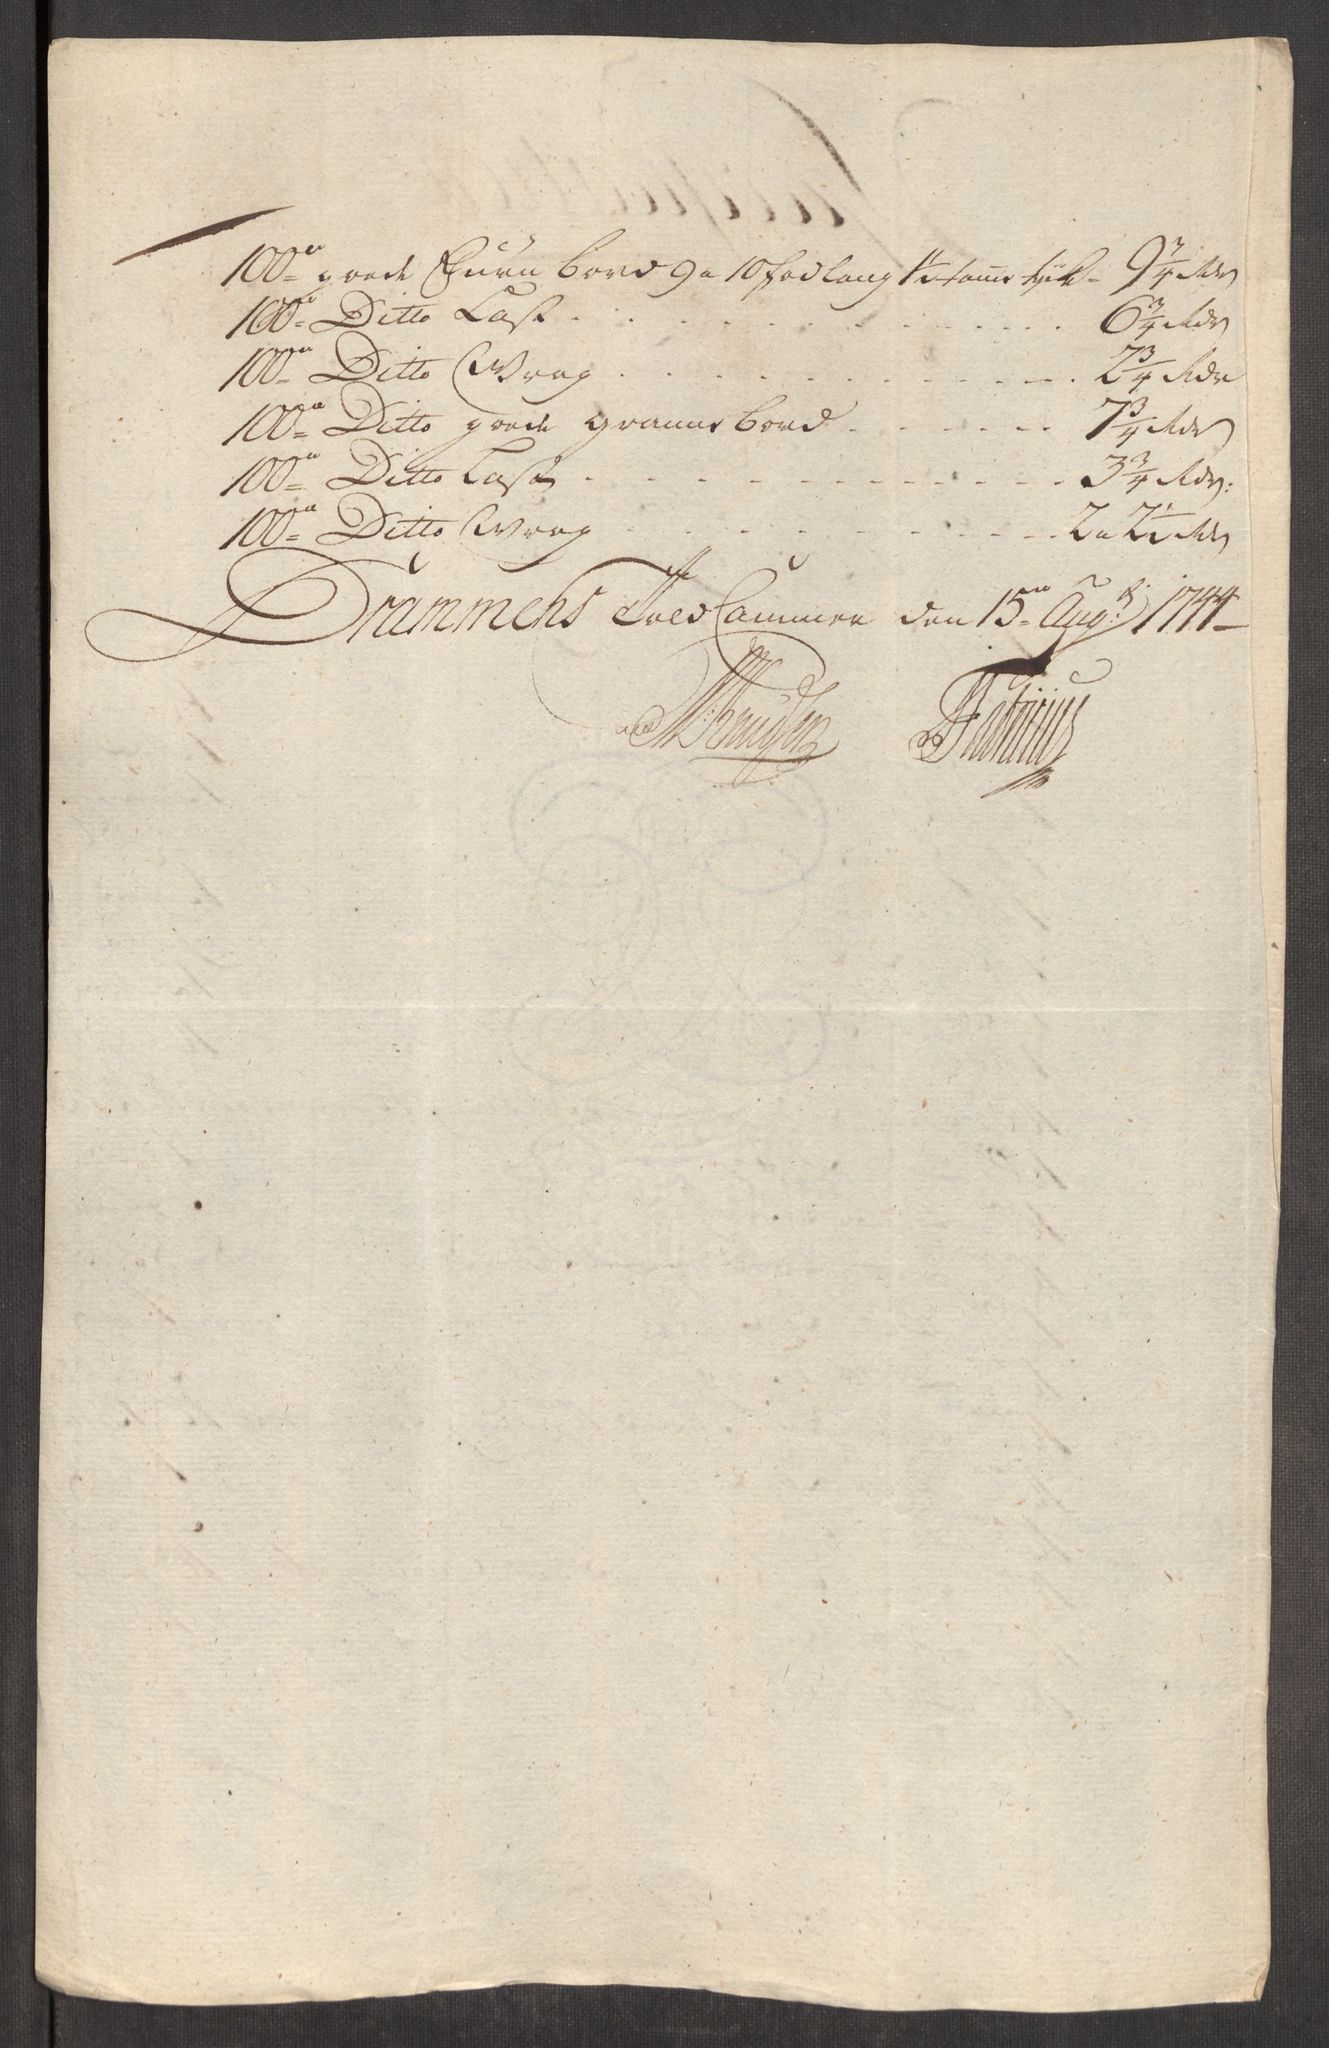 100de goede Furu bord 9 a 10 fod lang 1¼ tomme tyk - 9¾ Rdr
100de Ditto Last . . . . 6¾ Rdr
100de Ditto Wrag . . . . 2¾ Rdr
100de Ditto goede Granne bord . . . . 7¾ Rdr
100de Ditto Last . . . . 3¾ Rdr:
100de Ditto Wrag . . . . 2 a 2½ Rdr
Drammens Told Cammer den 15de Aug: 1744
Fabricius